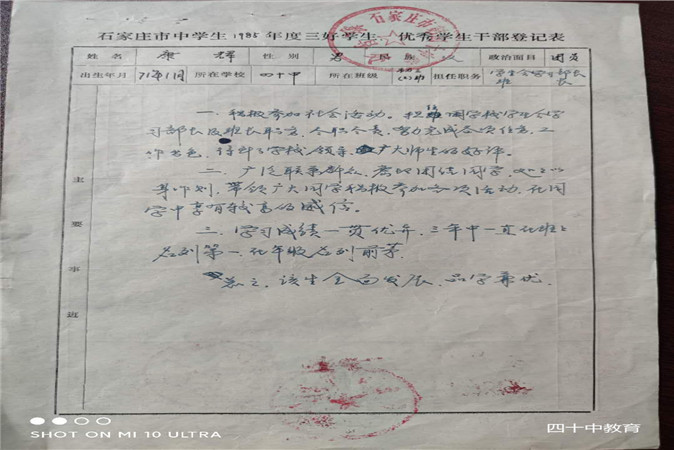 石家庄市中学生1985年度三好学生、优秀学生干部登记表
姓名 康辉 性别 男 民族 汉 政治面目 团员
出生年月 71年1月 所在学校 四十中 所在班级 担任职务 学生会学习部长 班长
主要事迹
一、积极参加社会活动。担任我校学生会学
习部长及班长职务,尽职尽责,努力完成各项任务,工
作出色,得到了学校领导、广大师生的好评。
二、广泛联系群众,
带领广大同学积极参加各项活动,在同
学中享有较高的威信。
三、学习成绩一贯优异,三年中一直在班上
名列第一,在年级名列前茅。
总之,该生全面发展,品学兼优。
SHOT ON MI 10 ULTRA
四十中教育